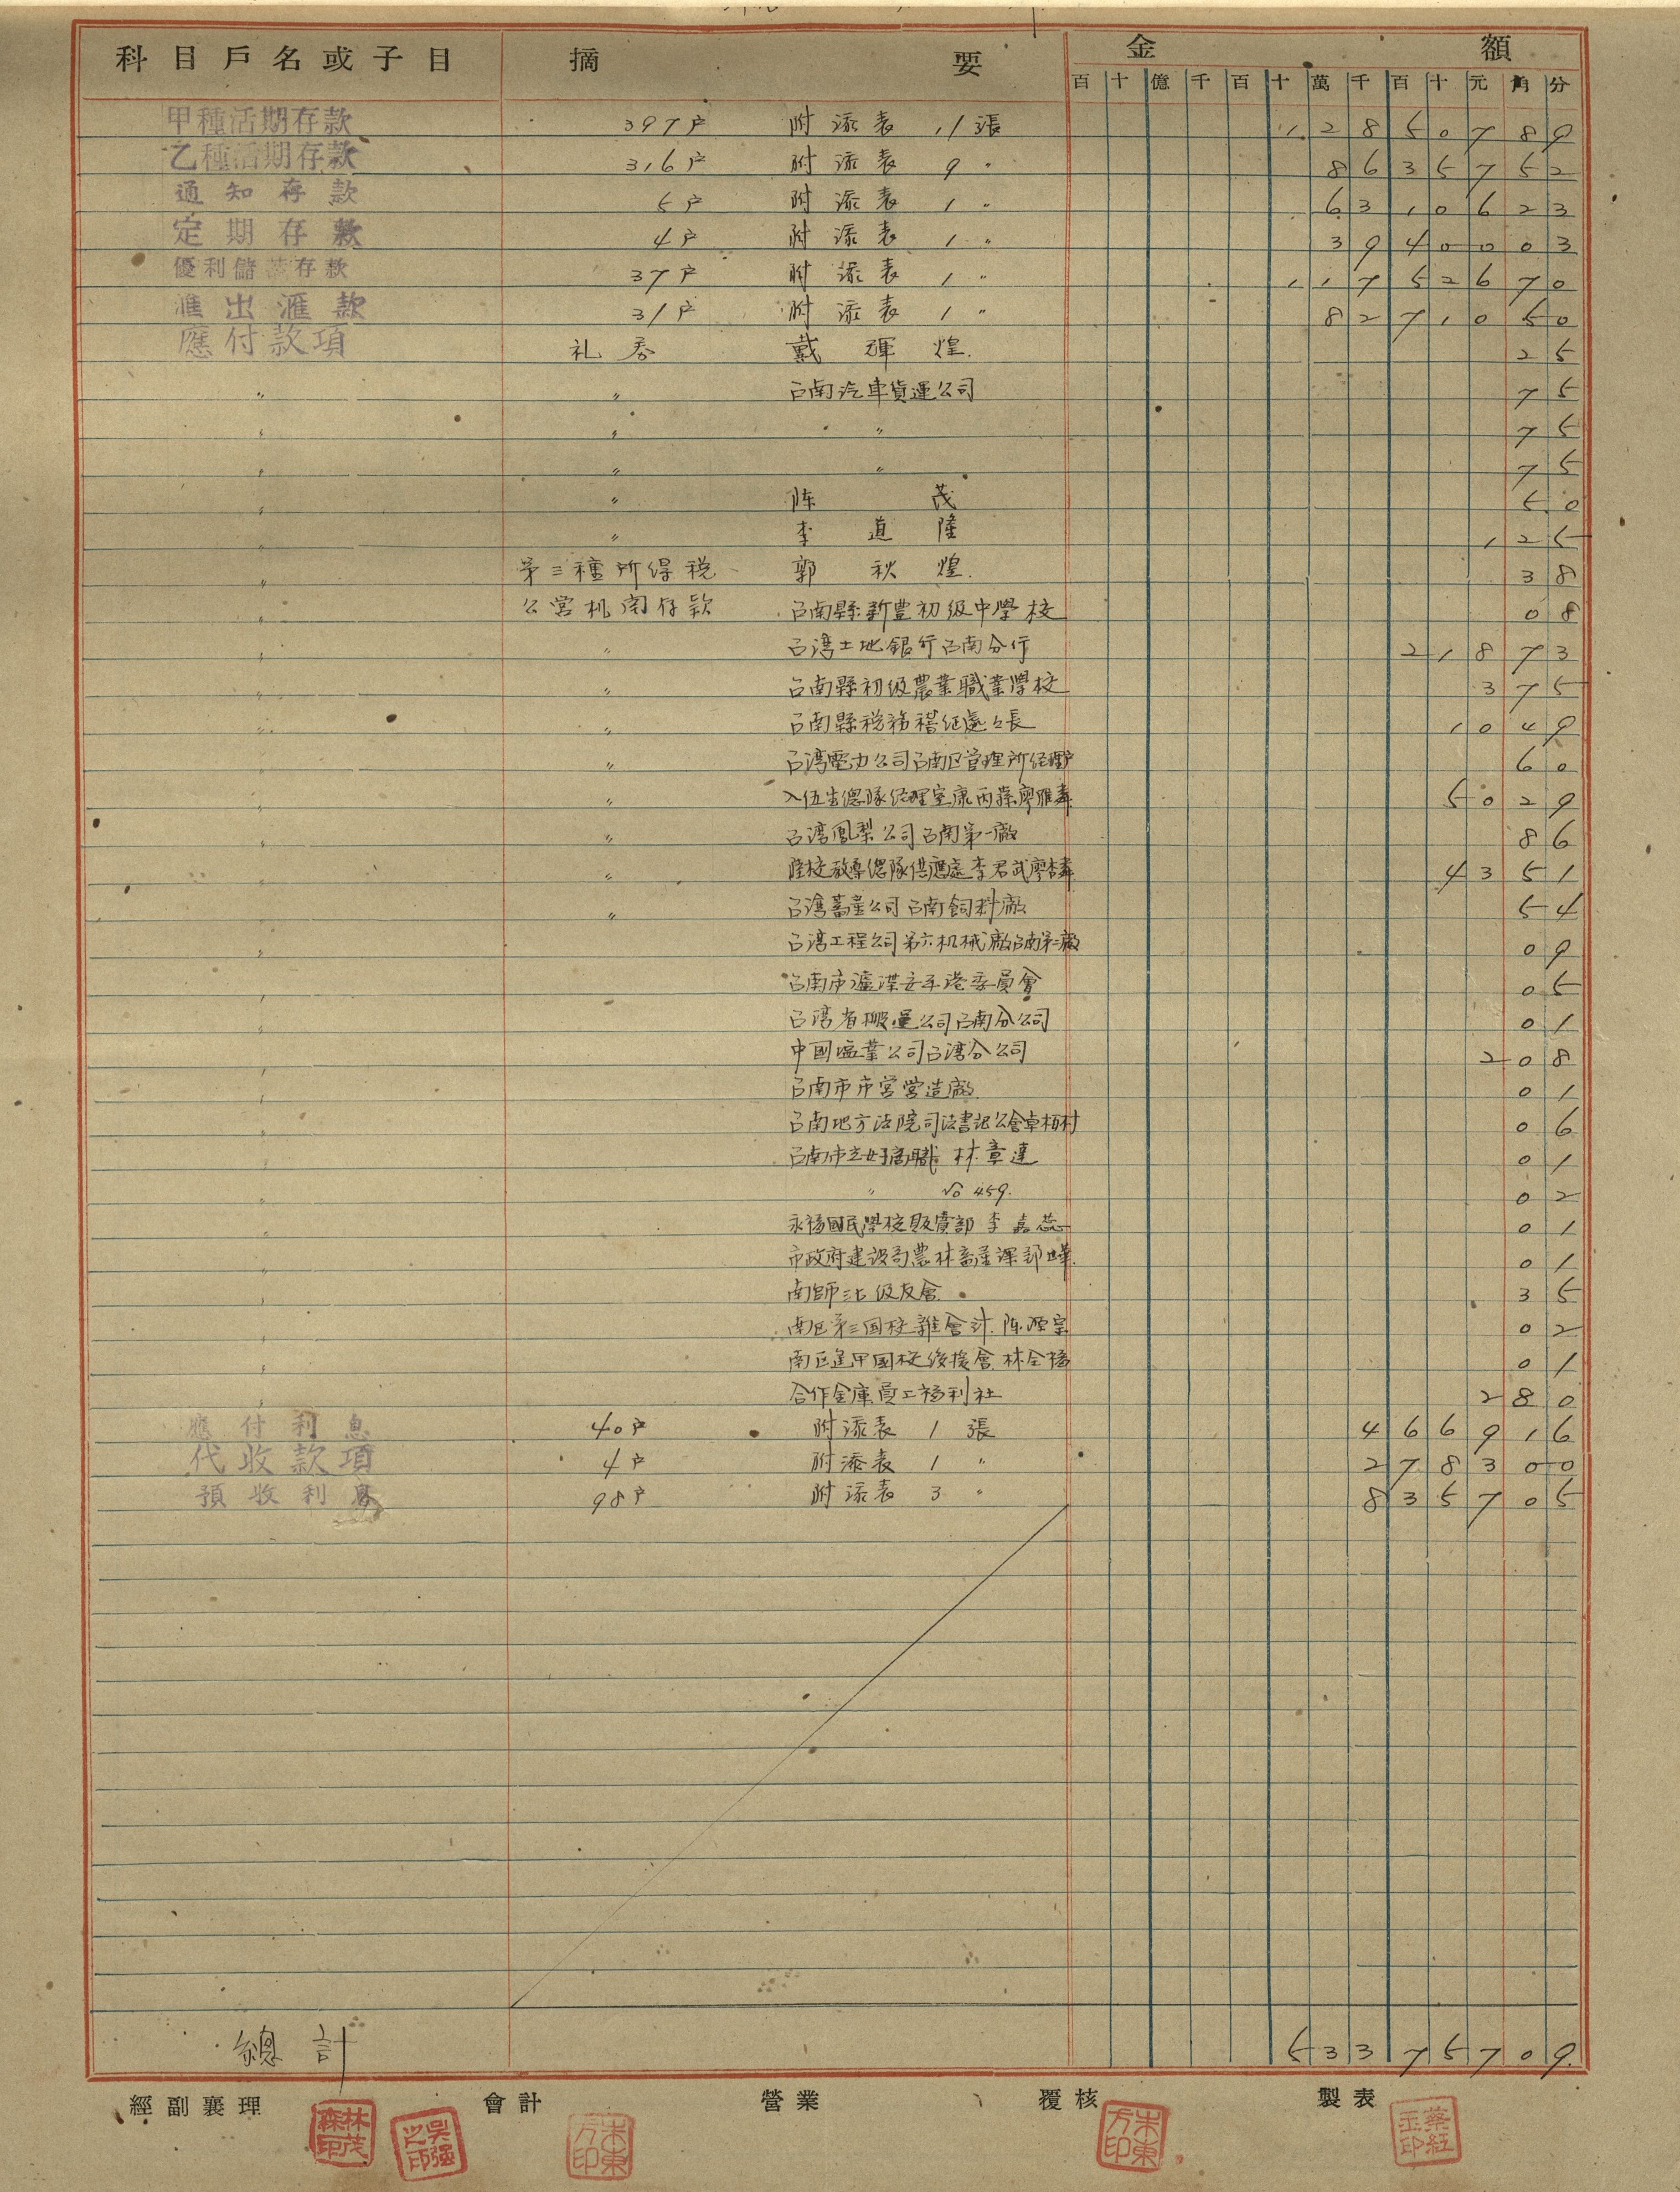 科目戶名或子目 摘要 金額
百 十 億 千 百 十 萬 千 百 十 元 角 分
甲種活期存款 397户 附添表 11張 1 2 8 5 0 7 8 9
乙種活期存款 316户 附添表 9 〃 8 6 3 5 7 5 2
通知存款 5户 附添表 1 〃 6 3 1 0 6 2 3
定期存款 4户 附添表 1 〃 3 9 4 0 0 0 3
優利儲蓄存款 37户 附添表 1 〃 1 1 7 5 2 6 7 0
滙出滙款 31户 附添表 1 〃 8 2 7 1 0 5 0
應付款項 礼券 戴輝煌 2 5
〃 〃 台南汽車貨運公司 7 5
〃 〃 〃 7 5
〃 〃 〃 7 5
〃 〃 陈茂 5 0
〃 〃 李道隆 1 2 5
〃 第三種所得税 郭秋煌 3 8
〃 公营机関存款 台南縣新豊初级中學校 0 8
〃 〃 台湾土地銀行台南分行 2 1 8 7 3
〃 〃 台南縣初级農業職業學校 3 7 5
〃 〃 台南縣税務稽征處々長 1 0 4 9
〃 〃 台湾電力公司台南区管理所经理 6 0
〃 〃 入伍生總隊经理室康丙 5 0 2 9
〃 〃 台湾鳳梨公司台南第一廠 8 6
〃 〃 陸校教導總隊供應處李君武 4 3 5 1
〃 〃 台湾畜產公司台南飼料廠 5 4
〃 台湾工程公司第六机械廠台南第二廠 0 9
〃 台南市濬渫安平港委員會 0 5
〃 台湾省搬運公司台南分公司 0 1
〃 中國塩業公司台湾分公司 2 0 8
〃 台南市市営営造廠 0 1
〃 台南地方法院司法書記公會卓栢村 0 6
〃 台南市立女子商職 林章達 0 1
〃 〃 No 459. 0 2
〃 永福國民學校販賣部 李嘉蕊 0 1
〃 市政府建設局農林畜產課 0 1
〃 南師三七级友會 3 5
〃 南区第三国校雜會計 陈 0 2
〃 南区逢甲國校後援會 林全福 0 1
〃 合作金庫員工福利社 2 8 0
應付利息 40户 附添表 1 張 4 6 6 9 1 6
代收款項 4户 附添表 1 〃 2 7 8 3 0 0
預收利息 98户 附添表 3 〃 8 3 5 7 0 5
總計 5 3 3 7 5 7 0 9
經副襄理 會計 營業 覆核 製表
林茂森印 吳强之印 朱東方印 朱東方印 蔡紅玉印